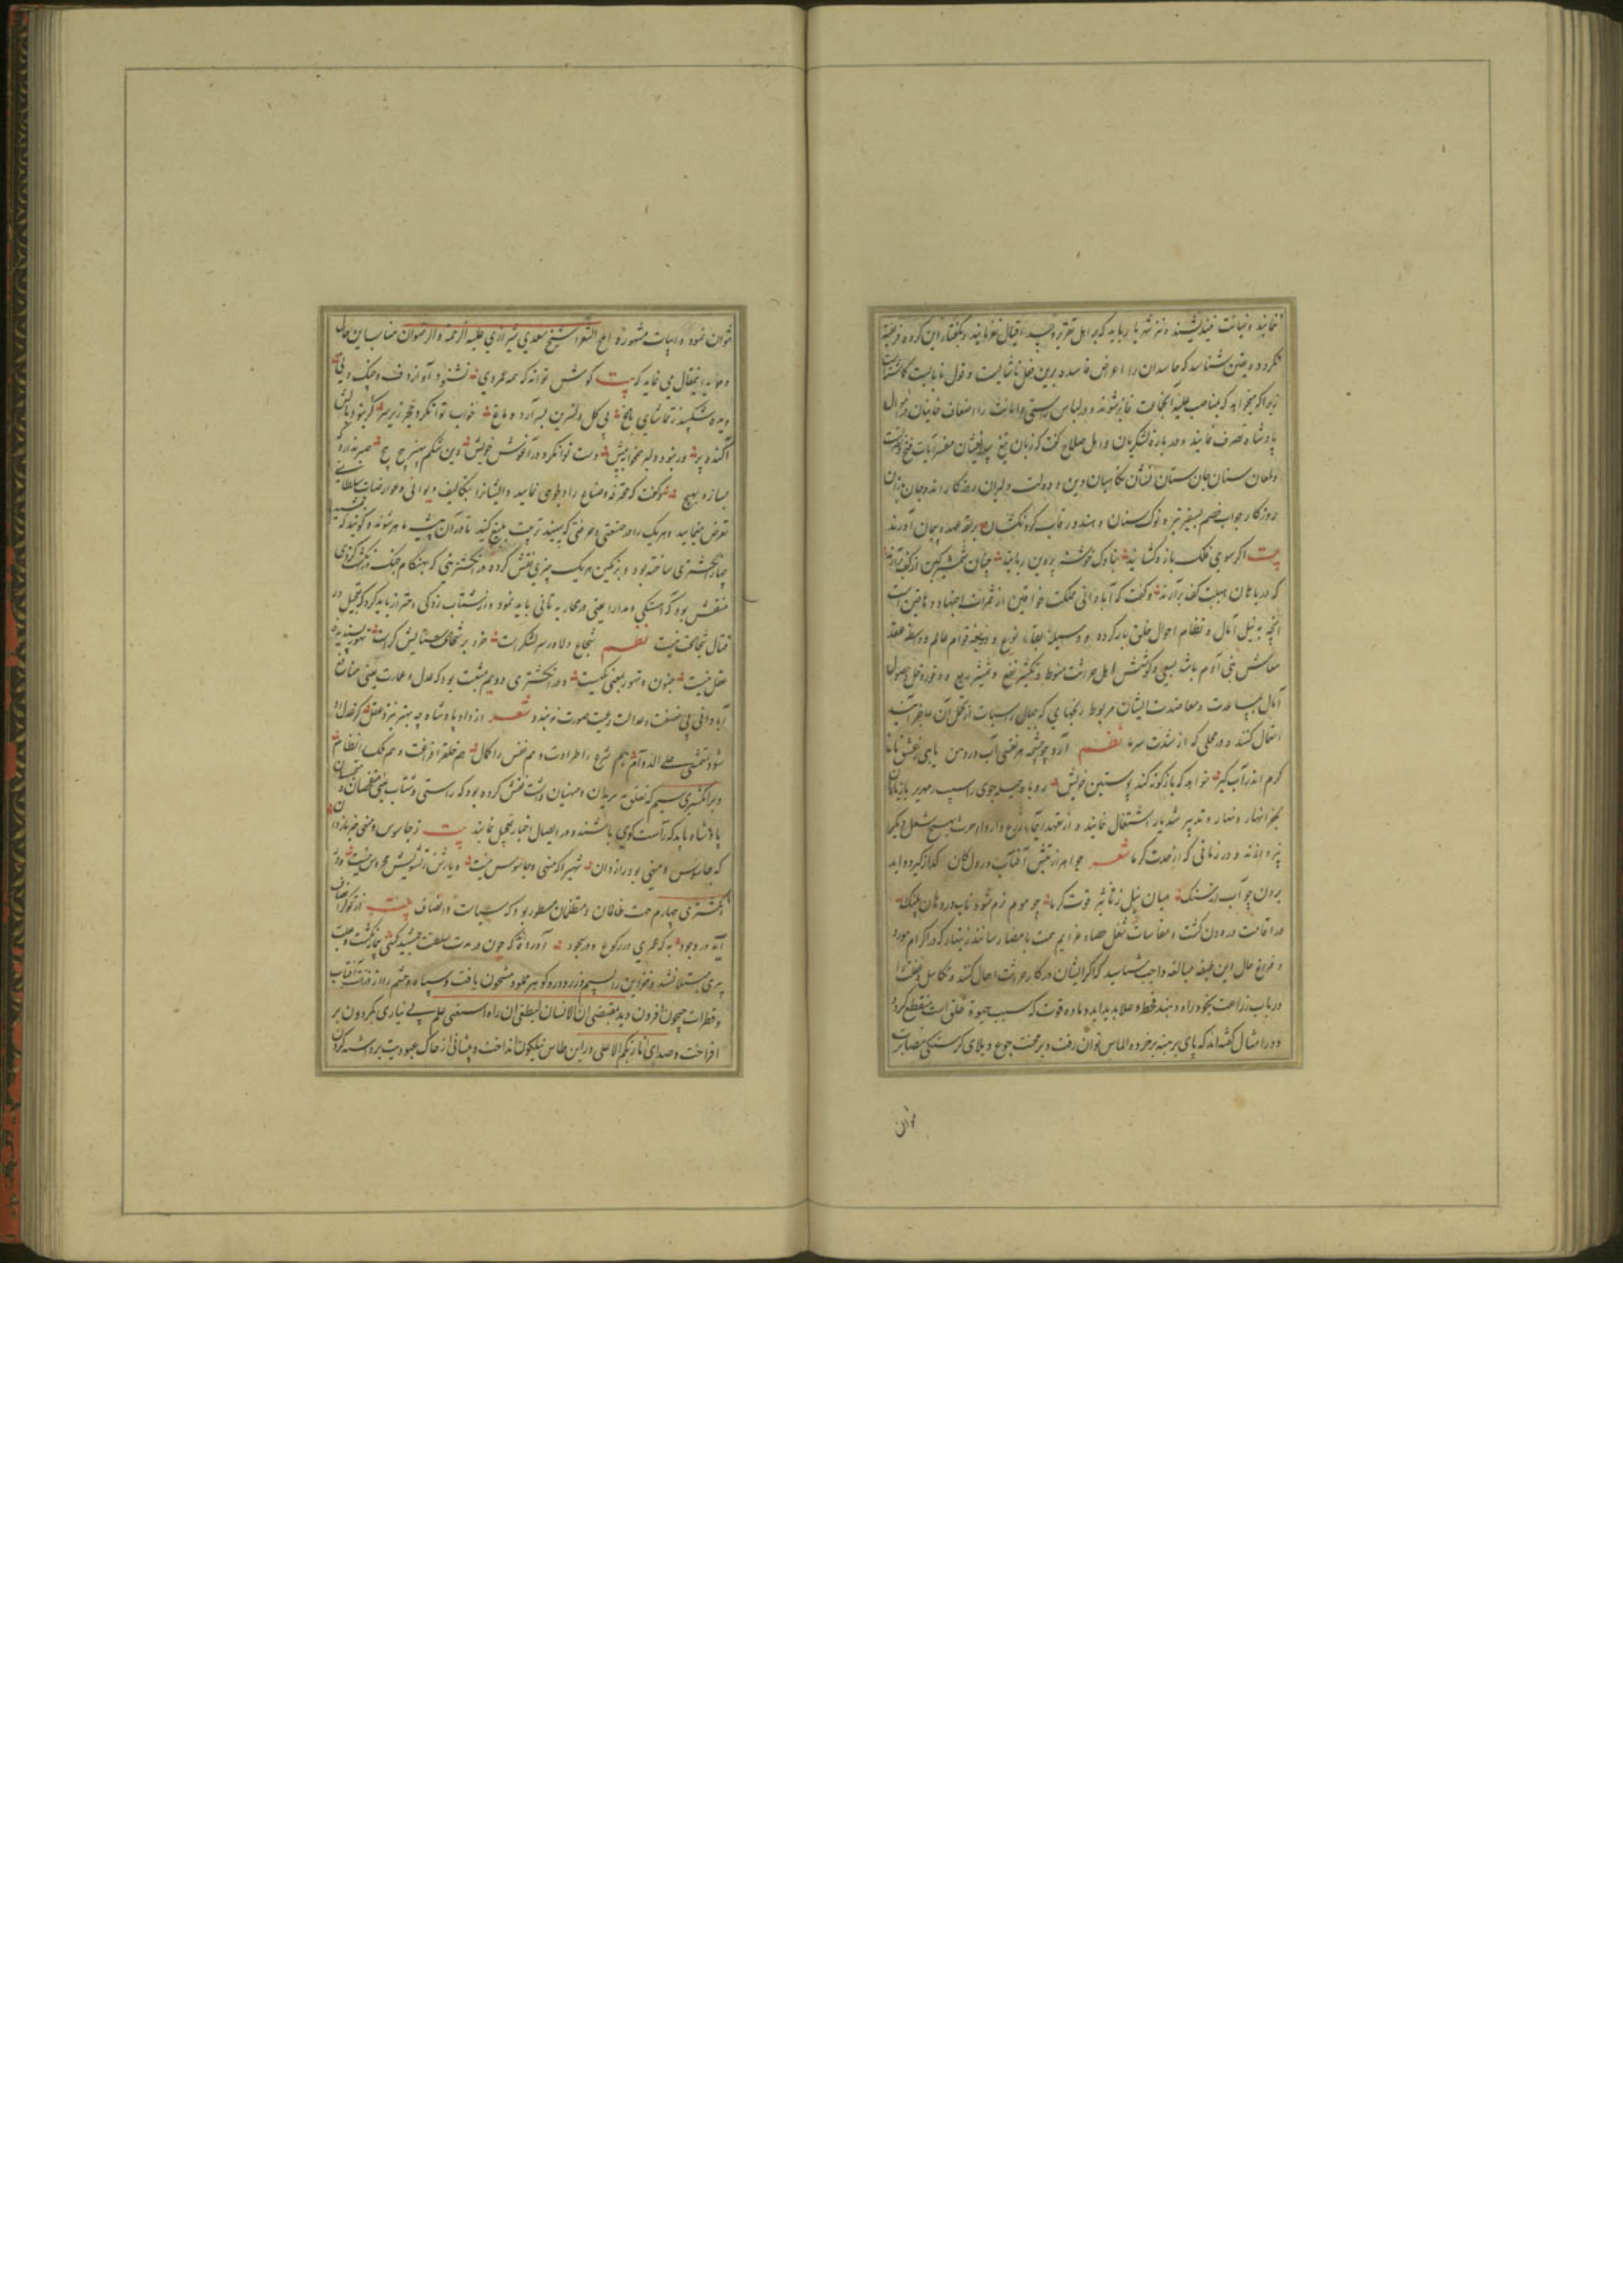 نمایند و خیانت نیندیشند و نیز شهریار باید که بر اهل تقریر و حسد اقبال نفرمایند و بگفتار این گروه فریفته
نکردد و یقین شناسد که حاسدان را اغراض فاسده برین فعل ناشایست و قول نابایست
زیرا که میخواهد که بمناصب علیه فایز شوند و در لباس راستی و امانت را اضعاف خاینان در اموال
پادشاه تصرف نمایند و در باره لشکریان و اهل سلاح گفت که زبان تیغ مفسر آیات فتح
ولمعان سنان جان ستان نشان نکاهبان دین و دولت
روز کار جواب خصم بسر نیزه و نوک سنان دهند و رقاب بربقه عهد و پیمان آورند
بیت اکر سوی فلک بازو کشایند بناوک خوشه پروین ربایند چنان شمشیر کین از کف
که دریا از هیبت کف برآرند و گفت که آبادانی مملکت خواقین از ثمرات اجتهاد دهاقین است
آنچه به نیل آمال و نظام احوال خلق بار کرده و وسیله بقاء نوع و ذریعه قوام عالم و واسطه عقد
معاش بنی آدم باشد بسعی و کوشش اهل حراثت منوط و تکثیر نفع و ریع و وفور دخل و حصول
آمال بمساعدت و معاضدت ایشان مربوط رنجهای که جبال راسیات از تحمل آن عاجز آیند
احتمال کنند و در محلی که از شدت سرما نظم آرد چو چشمه مرغی آب در دهن
کرم اندر آب کیر خواهد که باژکونه کند پوستین خویش روباه حیله جوی
بحفر انهار و تدبیر شدیار اشتغال نمایند و از تعهد
نپردازند و در زمانی که از حدت کرما شعر جواهر از تپش آفتاب در دل کان
برون چو آب از سنک میان نیل ز تاثیر قوت کرما چو موم نرم شود ناب در دهان پلنک
در اقامت درودن کشت و مقاسات شغل حصاد عزایم همت بامضا رسانند زینهار که در اکرام مورد
و فراغ حال این طبقه مبالغه واجب شناسید که اکر ایشان در کار حراثت اهمال کنند و تکاسل
در باب زراعت بخود راه دهند قحط و غلا پدید آید و ماده قوت که سبب حیوة خلق است منقطع کردد
و در امثال گفته اند که پای برهنه بر خرده الماس توان رفت و بر محنت جوع و بلای کرسنکی مصابرت
توان
نتوان نمود و ابیات مشهوره املح الشعرا شیخ سعدی شیرازی علیه الرحمه و الرضوان مناسب این حال
و موید این مقال می نماید که بیت کوش تواند که همه عمر وی نشنود آواز دف و چنک و نی
دیده شکیبد ز تماشای باغ بی کل و نسرین بسر آرد دماغ خواب توان کرد حجر زیر سر کر نبود بالش
آکنده پر ور نبود دلبر همخوابه پیش دست توان کرد در آغوش خویش وین شکم بیهنر پیچ پیچ صبر ندارد که
بسازد بهیچ و گفت که محترفه و صناع را دلجوی نمایید و ایشانرا بتکالیف دیوانی و عوارضات سلطانی
تعرض منمایید و هر یک را در صنعتی و حرفتی که ببینید تربیت بلیغ کنید تا در آن پیشه ماهر شوند و کویند که
چهار انکشتری ساخته بود و بر نکین هر یک چیزی نقش کرده در انکشترینی که بهنکام جنک
منقش بود که آهستکی و مدارا یعنی در محاربه تانی باید نمود و از شتاب زدکی احتراز باید کرد که تعجیل در
قتال شجاعت نیست نظم شجاع دلاور سر لشکر است خرد بر شجاعت ستایش کر است تهور پسندیده
عقل نیست جنون و تهور بمعنی یکیست و در انکشتری دویم مثبت بود که عدل و عمارت یعنی منافع
آبادانی بی نصفت و عدالت رعیت صورت نبندد شعر از داد پادشاه چه بهتر بنزد عقل کز عدل او
شود متمشی علی الدوام هم شرع را طراوت و هم نفس را کمال هم خلق را فراغت و هم ملک را نظام
و بر انکشتری سیم که تعلق به بریدان و منهیان داشت نقش کرده بود که راستی و شتاب یعنی متفحصان و متجسسان
پادشاه باید که راست کوی باشند و در ایصال اخبار تعجیل نمایند بیت ز جاسوس و منهی خبر باز دان
که جاسوس و منهی بود رازدان شهی را که منهی و جاسوس نیست دیارش ز تشویش محروس نیست و در
انکشتری چهارم جهت ظالمان و متظلمان مسطور بود که سیاست و انصاف بیت
آید در وجود به که عمری در رکوع و در سجود آورده اند که چون در مدت سلطنت جمشید کسی
پیری مبتلا نشد و خزاین را بسیم و زر و در و کوهر مملو و مشحون یافت و سپاه و حشم را از ذرات آفتاب
و قطرات جیحون افزون دید بمقتضی ان الانسان لیطغی ان راه استغنی علم بی نیازی بکردون بر
افراخت و صدای انا ربکم الاعلی در این طاس نیلکون انداخت و پیشانی از خاک عبودیت برداشته کردن